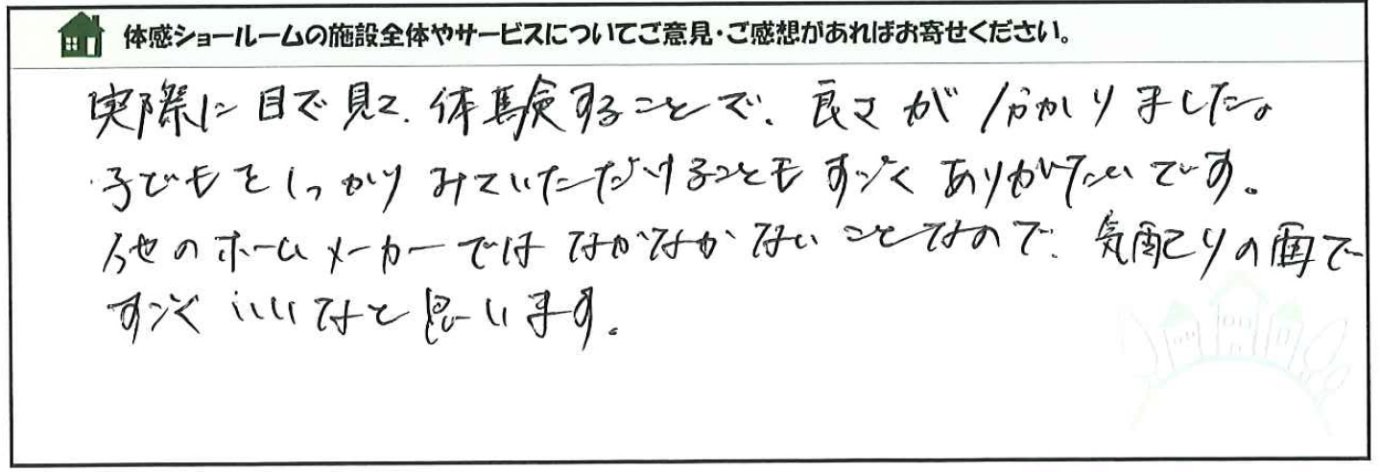 体感ショールームの施設全体やサービスについてご意見・ご感想があればお寄せください。
実際に目で見て、体験することで、良さが分かりました。
子どもをしっかりみていただけることもすごくありがたいです。
他のホームメーカーではなかなかないことなので、気配りの面で
すごくいいなと思います。